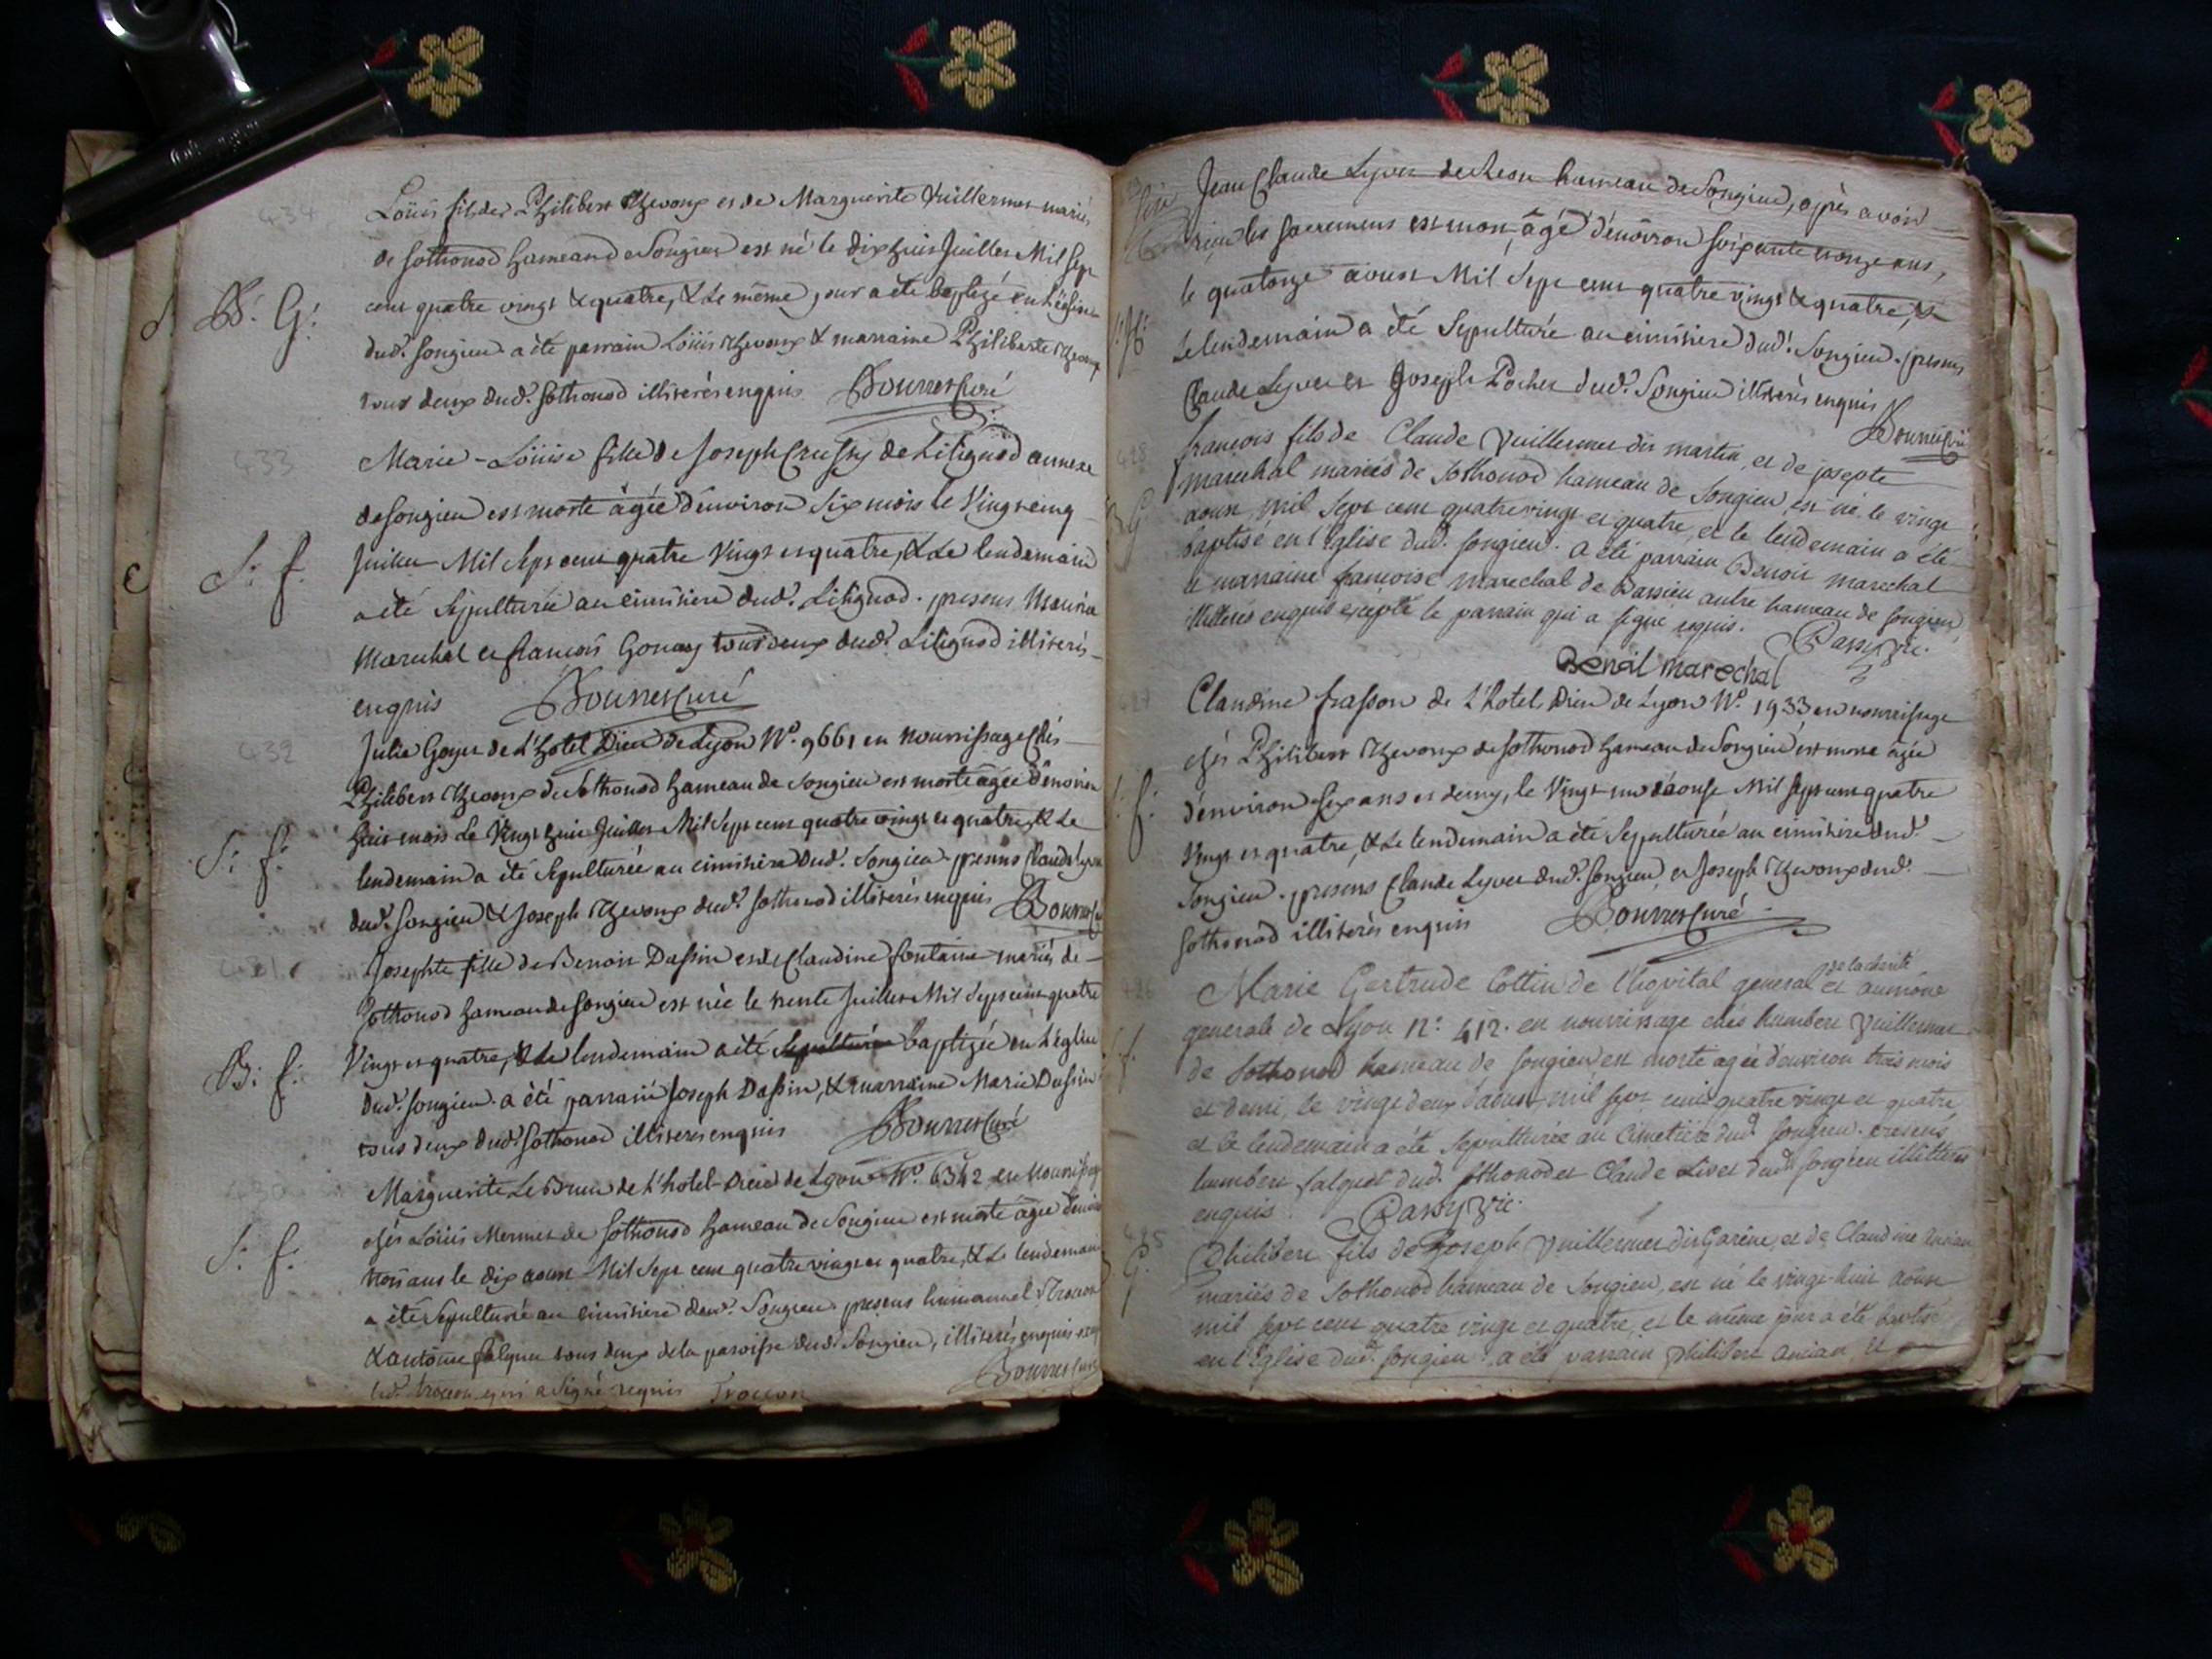 434
Loüis fils de Philibert Thevoux et de Marguerite Vuillermet mariés
de Sothonod hameau de Songieu est né le dix huit Juillet Mil Sept
B: G: cent quatre vingt & quatre, & le même jour a été baptizé en l'église
dud.t Songieu a été parrain Loüis Thevoux & marraine Philiberte Thevoux
tous deux dud.t Sothonod illiterés enquis Bonnet Curé
433
Marie-Loüise fille de Joseph de Lilignod annexe
de Songieu est morte âgée d'environ six mois le Vingt cinq
S: f: Juillet Mil Sept cent quatre Vingt et quatre, & le lendemain
a été Sepulturée au cimitiere dud.t Lilignod. presens
Marechal et francois Gonay tous deux dud.t Lilignod illiterés
enquis Bonnet Curé
432
Julie Goyet de L'hotel Dieu de Lyon N.o 9661 en nourrissage chés
Philibert Thevoux de Sothonod hameau de Songieu est morte âgée d'environ
huit mois le Vingt huit Juillet Mil Sept cent quatre vingt et quatre, & le
S: f: lendemain a été Sepulturée au cimitiere dud.t Songieu presens Claude Lyvet
dud.t Songieu & Joseph Thevoux dud.t Sothonod illiterés enquis Bonnet
431
Josephte fille de Benoit Dassin et de Claudine fontaine mariés de
Sothonod hameau de Songieu est née le trente Juillet Mil Sept cent quatre
B: f: Vingt et quatre, & le lendemain a été Sepulturée baptizée en l'église
dud.t Songieu. a été parrain Joseph Dassin, & marraine Marie Dassin
tous deux dud.t Sothonod illiterés enquis Bonnet Curé
430
Marguerite Le Brun de L'hotel-Dieu de Lyon N.o 6342 en Nourrissage
S: f: chés Loüis Mermet de Sothonod hameau de Songieu est morte âgée d'environ
trois ans le dix aoust Mil Sept cent quatre vingt et quatre, & le lendemain
a été Sepulturée au cimitiere dud.t Songieu. presens humanuel Trocon
& antoine falquet tous deux de la paroisse dud.t Songieu, illiterés enquis
led.t trocon qui a Signé requis Trocon Bonnet Curé
Jean Claude Lyvet hameau de Songieu, après avoir
reçu les sacremens est mort, âgé d'environ soixante et onze ans,
le quatorze aoust Mil Sept cent quatre vingt & quatre, &
le lendemain a été Sepulturé au cimitiere dud.t Songieu. presens
Claude Lyvet et Joseph Pochet dud.t Songieu illiterés enquis
Bonnet Curé
428
francois fils de Claude Vuillermet dit martin, et de josepte
marechal mariés de Sothonod hameau de Songieu, est né le vingt
aoust, mil Sept cent quatre vingt et quatre, et le lendemain a été
baptisé en l'Eglise dud.t Songieu. a été parrain Benoit marechal
et marraine francoise marechal de Bassieu autre hameau de Songieu,
illiterés enquis exepté le parrain qui a signé requis. Passy Vic.
Benoit marechal
427
Claudine frasson de L'hotel Dieu de Lyon N.o 1933 en nourrissage
chés Philibert Thevoux de Sothonod hameau de Songieu est morte âgée
f: d'environ six ans et demy, le Vingt un d'aoust Mil Sept cent quatre
Vingt et quatre, & le lendemain a été Sepulturée au cimitiere dud.t
Songieu. presens Claude Lyvet dud.t Songieu et Joseph Thevoux dud.t
Sothonod illiterés enquis Bonnet Curé
426
Marie Gertrude Cottin de l'hopital general de la charité et aumône
generale de Lyon N.o 412. en nourrissage chés humbert Vuillermet
f. de Sothonod hameau de Songieu est morte agée d'environ trois mois
et demi, le vingt deux d'aoust mil sept cent quatre vingt et quatre,
et le lendemain a été sepulturée au Cimetiere dud.t Songieu. presens
humbert falquet dud.t Sothonod et Claude Livet dud.t Songieu illitterés
enquis Passy Vic.
425
Philibert fils de Joseph Vuillermet dit Garéne, et de Claudine Ancian
G. mariés de Sothonod hameau de Songieu, est né le vingt-huit Aoust
mil sept cent quatre vingt et quatre, et le même jour a été baptisé
en l'Eglise dud.t Songieu. a été parrain philibert ancian, et